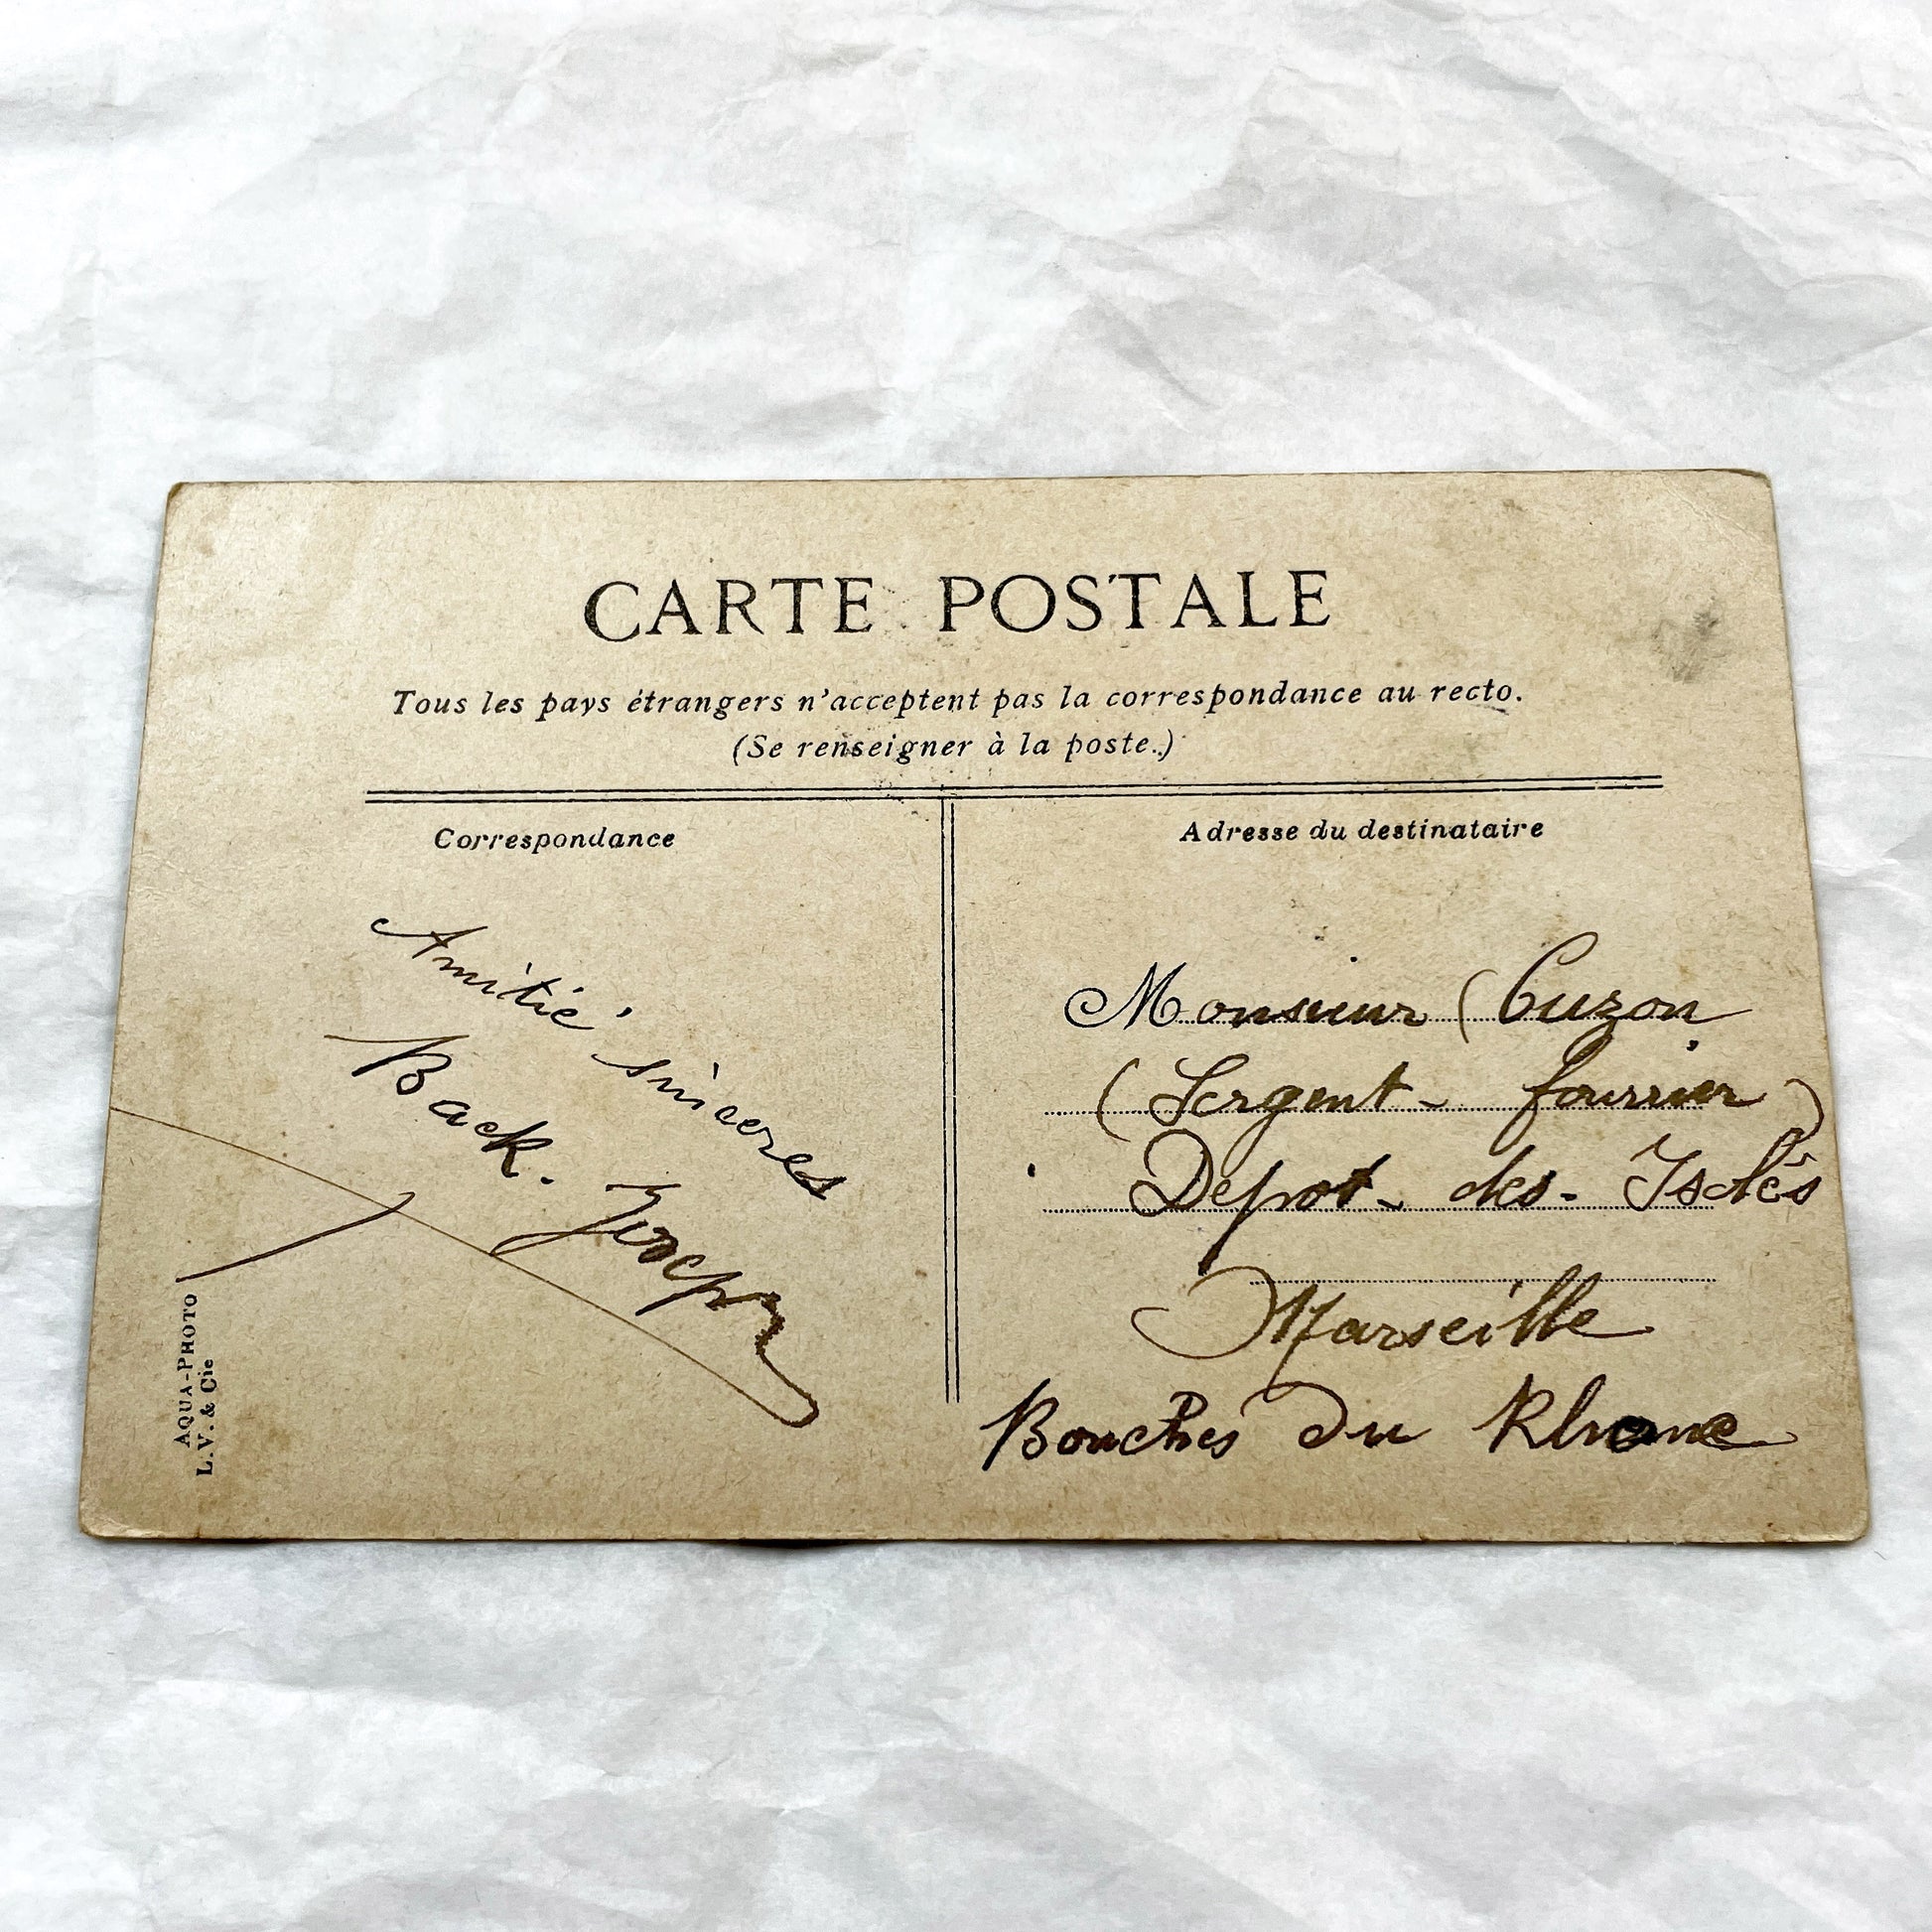 CARTE POSTALE
Tous les pays étrangers n'acceptent pas la correspondance au recto.
(Se renseigner à la poste.)
Correspondance
Amitié sincères
Back. Joseph
AQUA-PHOTO
L.V. & Cie
Adresse du destinataire
Monsieur Cuzon
(Sergent-fourrier)
Depot des
Marseille
Bouches du Rhone